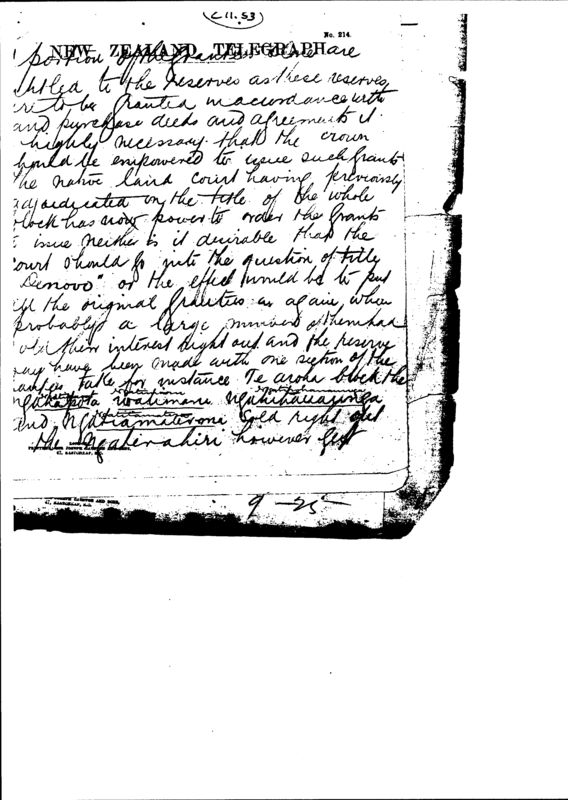 C 11.53
No. 214.
NEW ZEALAND TELEGRAPH
portion of the grantees are
to the reserves as these reserves
to be granted in accordance with
and purchase deeds and agreements it
highly necessary that the crown
should be empowered to issue such grants
the native land court having previously
adjudicated on the title of the whole
block has now power to order the grants
issue neither is it desirable that the
court should go into the question of title
"Denovo" or the effect would be to put
the original grantees in again when
probably a large number of them had
their interest right out and the reserve
may have been made with one section of the
take for instance Te aroha block the
and sold right out
the Ngatirahiri however left
9 - 25